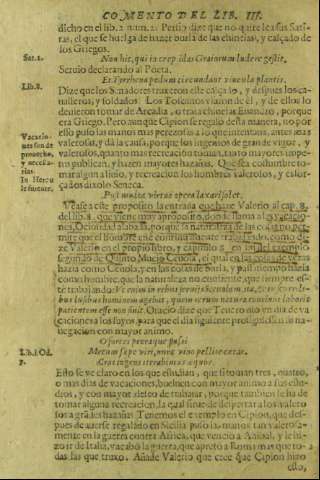 COMENTO DEL LIB. III.
dicho en el lib. 2. num. 2. Persio dize que no quire leas sus Sati-
ras, el que se huelga de hazer burla de las chinelas, y calçado de
los Griegos.
Sat. 1.
Non hic, qui in crepidas Graiorum ludere gestit,
Seruio declarando al Poeta.
Et Tyrrhena pedum circundant vincula plantis.
Lib. 8.
Dize que los Senadores traxeron este calçado, y despues los ca-
ualleros, y soldados. Los Toscanos vsaron de el, y de ellos lo
era Griego. Pero aunque Cipion se regalo desta manera, no por
esso puso las manos mas perezosas a lo que intentaua, antes mas
valerosas, y dà la causa, porque los ingenios de gran vigor, y
valeroso, quanto mas recreacion toman, tanto mayores impe-
tus publican, y hazen mayores hazañas. Que sea costumbre to-
mar algun aliuio, y recreacion los hombres valerosos, y esfor-
çados dixolo Seneca.
Vacacio-
nes son de
prouecho,
y necessa-
rias.
In Hercu
le furente.
Vease a este proposito la entrada que haze Valerio al cap. 8.
del lib. 8. que viene muy a proposito, donde llama a las vacacio-
nes, Ociosidad alabada, porque la naturaleza de las cosas no per-
mite que el hombre este continuamente trabajando, como di-
ze Valerio en el proprio libro, y capitulo 8. en el exemplo
segundo de Quinto Mucio Ceuola, el qual en las cosas de veras
hazia como Ceuola, y en las cosas de burla, y passatiempo hazia
como hombre, que la naturaleza no consiente, que siempre es-
te trabajando.
patientem esse non sinit. Oracio dize que Teucro no vn dia de va-
caciones a los suyos, para que el dia siguiente prosiguiessen su na-
uegacion con mayor animo.
O fortes peioraque passi
Lib. 1. Od.
7.
Mecum sæpe viri, nunc vino pellite curas.
Cras ingens iterabimus æquor.
Esto se ve claro en los que estudian, que si toman tres, quatro,
o mas dias de vacaciones, bueluen con mayor animo a sus estu-
dios, y con mayor desseo de trabajar, porque tambien se ha de
tomar alguna recreacion, la qual sirue de despertar a los valero-
sos a grandes hazañas. Tenemos el exemplo en Cipion, que des-
pues de auerse regalado en Sicilia puso las manos tan valerosa-
mente en la guerra contra Africa, que vencio a Anibal, y le hi-
zo ir de Italia, y acabò la guerra, que apretò a Roma mas que to-
das las que truxo. Añade Valerio que cree que Cipion hizo
esto,